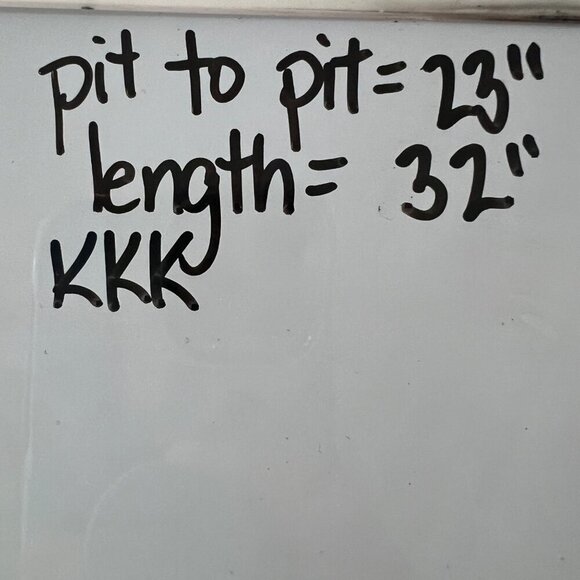 pit to pit = 23"
length = 32"
KKK